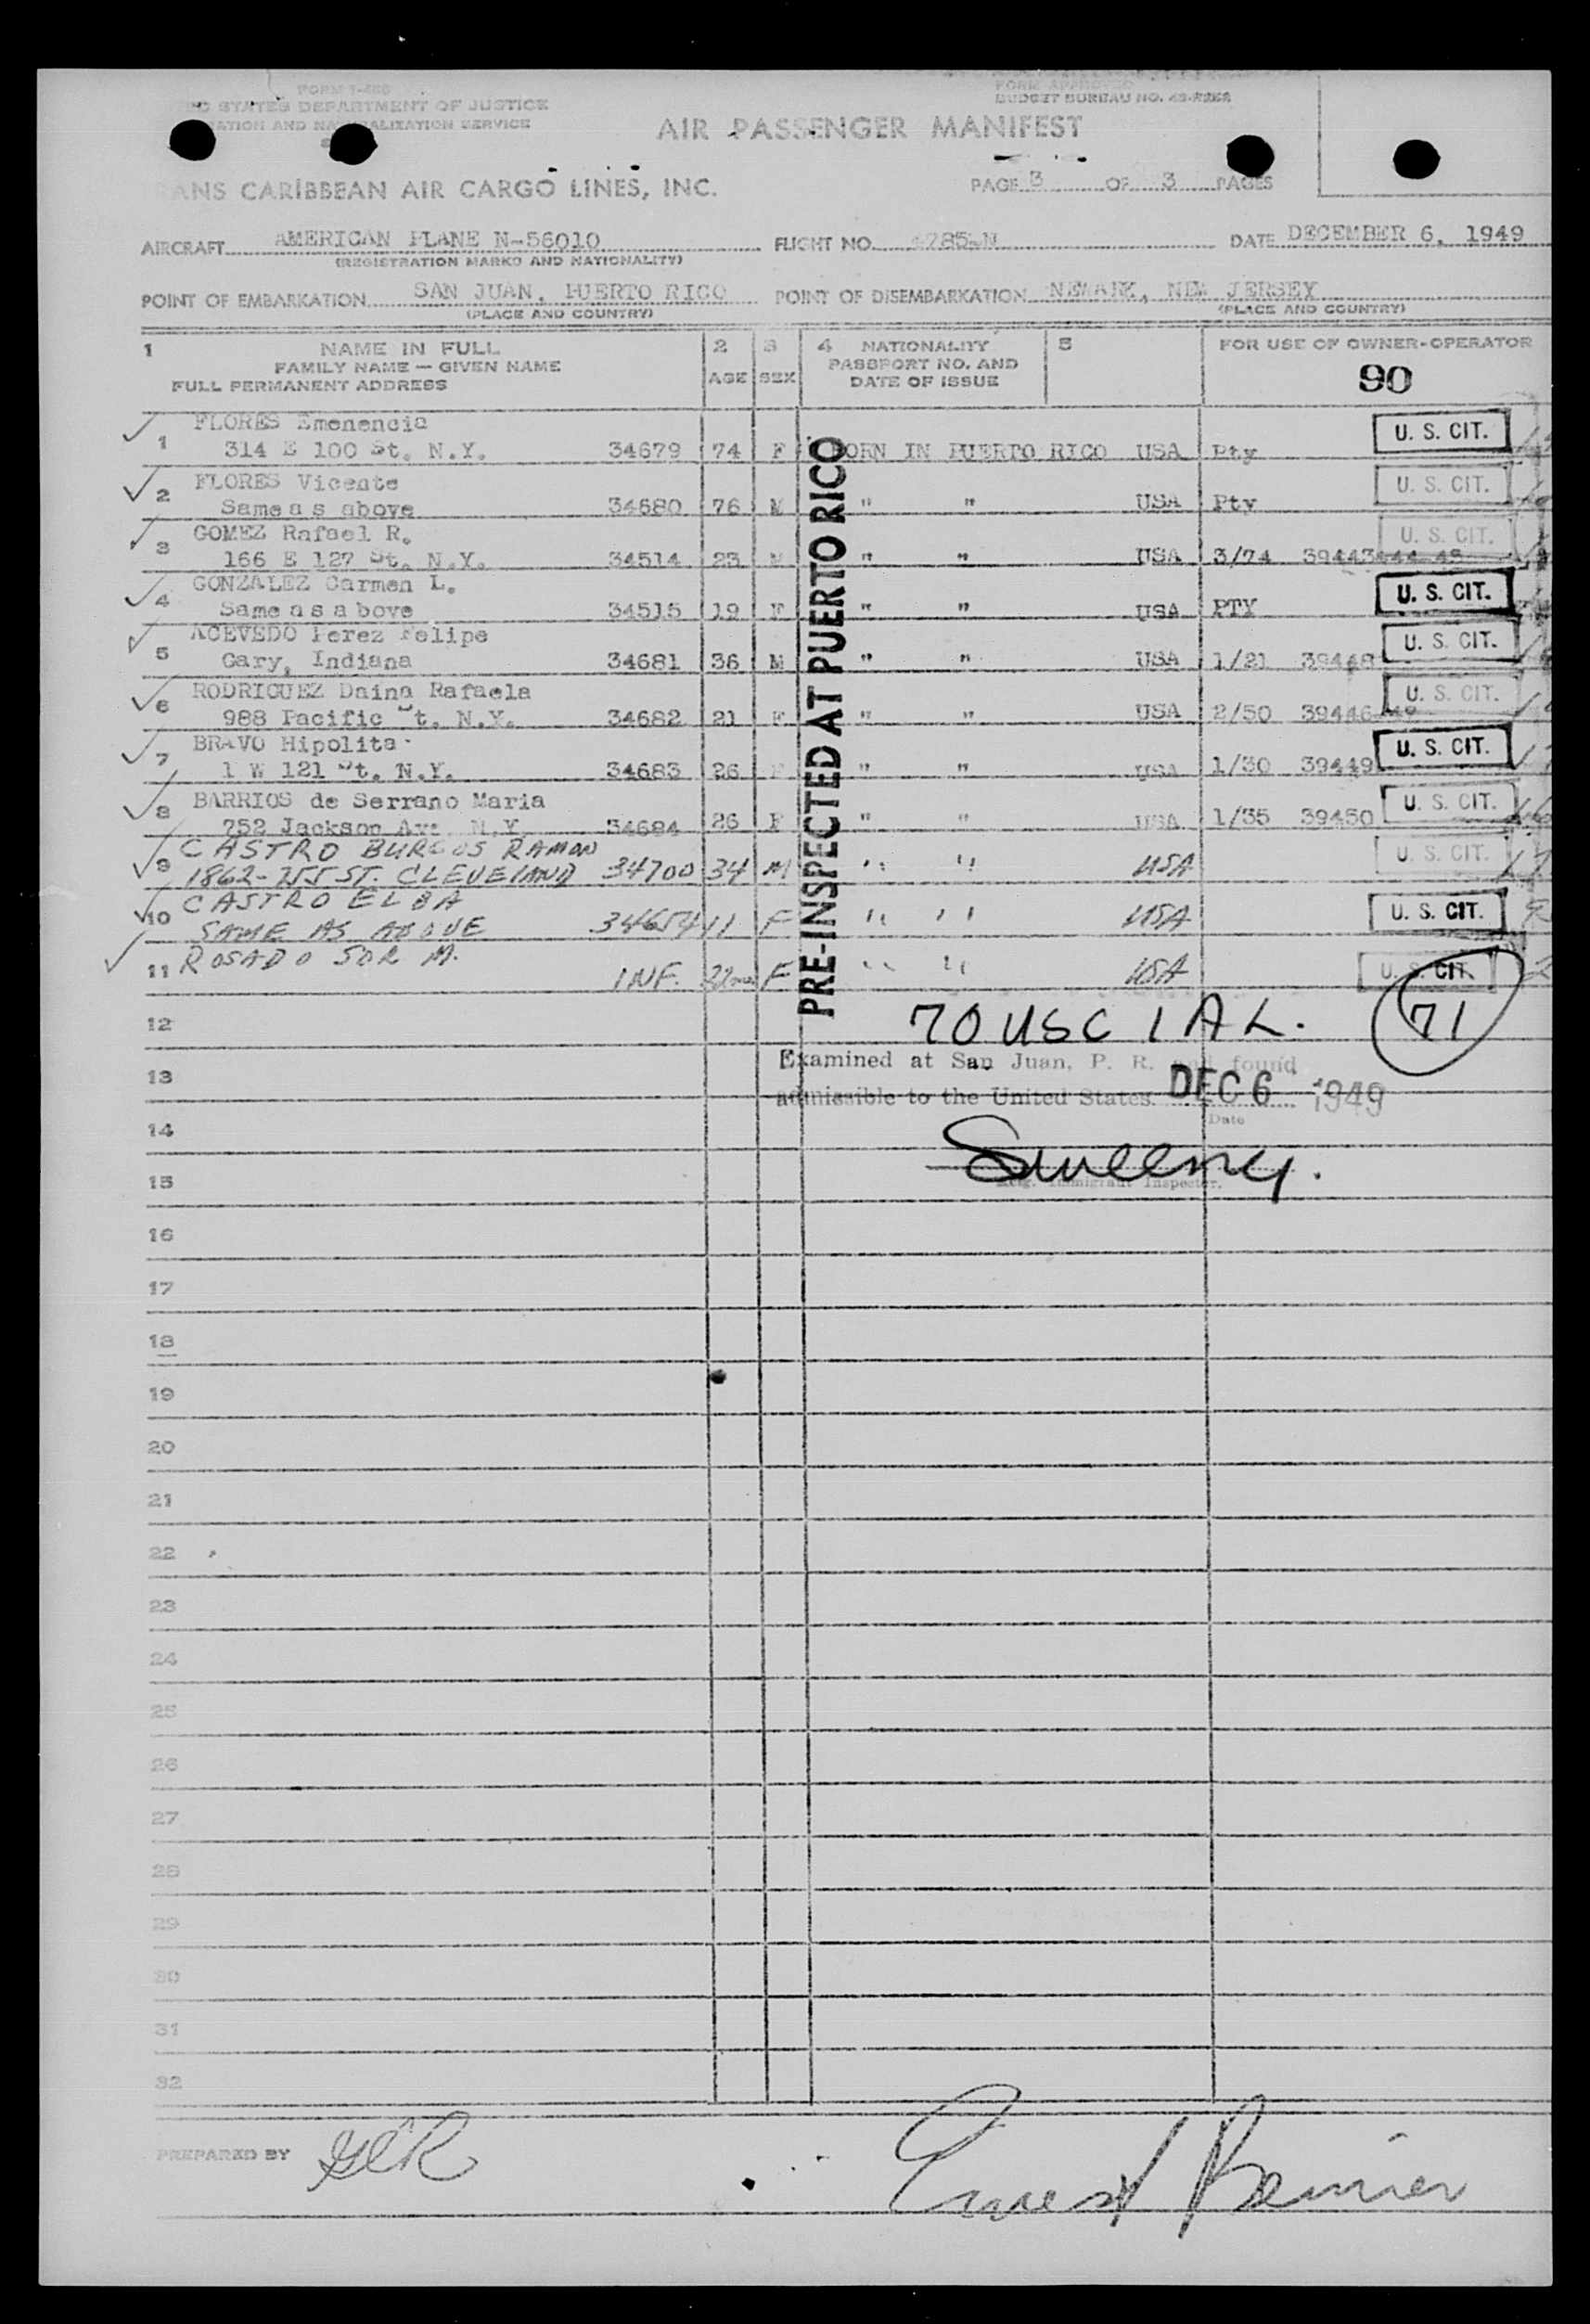 FORM I-466
STATES DEPARTMENT OF JUSTICE
AND NATURALIZATION SERVICE
FORM APPROVED
BUDGET BUREAU NO.
AIR PASSENGER MANIFEST
TRANS CARIBBEAN AIR CARGO LINES, INC.
PAGE 3 OF 3 PAGES
AIRCRAFT AMERICAN PLANE N-56010 FLIGHT NO. 785-N DATE DECEMBER 6, 1949
(REGISTRATION MARKS AND NATIONALITY)
POINT OF EMBARKATION SAN JUAN, PUERTO RICO POINT OF DISEMBARKATION NEWARK, NEW JERSEY
(PLACE AND COUNTRY) (PLACE AND COUNTRY)
1 NAME IN FULL 2 3 4 NATIONALITY 5 FOR USE OF OWNER-OPERATOR
FAMILY NAME — GIVEN NAME PASSPORT NO. AND
FULL PERMANENT ADDRESS AGE SEX DATE OF ISSUE 90
PRE-INSPECTED AT PUERTO RICO
FLORES Emenencia U. S. CIT.
1 314 E 100 St. N.Y. 34679 74 F BORN IN PUERTO RICO USA Pty
2 FLORES Vicente U. S. CIT.
Same as above 34680 76 M " " USA Pty
3 GOMEZ Rafael R. U. S. CIT.
166 E 127 St. N.Y. 34514 23 M " " USA 3/74 39443
4 GONZALEZ Carmen L. U. S. CIT.
Same as above 34515 19 F " " USA PTY
5 ACEVEDO Perez Felipe U. S. CIT.
Gary, Indiana 34681 36 M " " USA 1/21 39448
6 RODRIGUEZ Daina Rafaela U. S. CIT.
988 Pacific St. N.Y. 34682 21 F " " USA 2/50 39446
7 BRAVO Hipolita U. S. CIT.
1 W 121 St. N.Y. 34683 26 F " " USA 1/30 39449
8 BARRIOS de Serrano Maria U. S. CIT.
752 Jackson Ave. N.Y. 34684 26 F " " USA 1/35 39450
9 CASTRO BURGOS RAMON U. S. CIT.
1862-55 ST. CLEVELAND 34700 34 M " " USA
10 CASTRO ELBA U. S. CIT.
SAME AS ABOVE 34654 11 F " " USA
11 ROSADO SOR M. U. S. CIT.
INF. F " " USA
12 70 USC 1 AL. 71
Examined at San Juan, P. R. and found
13 admissible to the United States DEC 6 1949
Date
14
Sweeny.
15 Immigrant Inspector.
16
17
18
19
20
21
22
23
24
25
26
27
28
29
30
31
32
PREPARED BY GCR Ernest Bernier